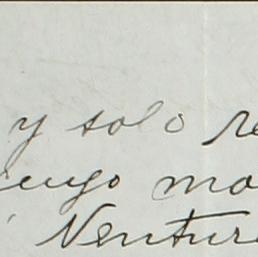 y solo re
uyo ma
Ventur